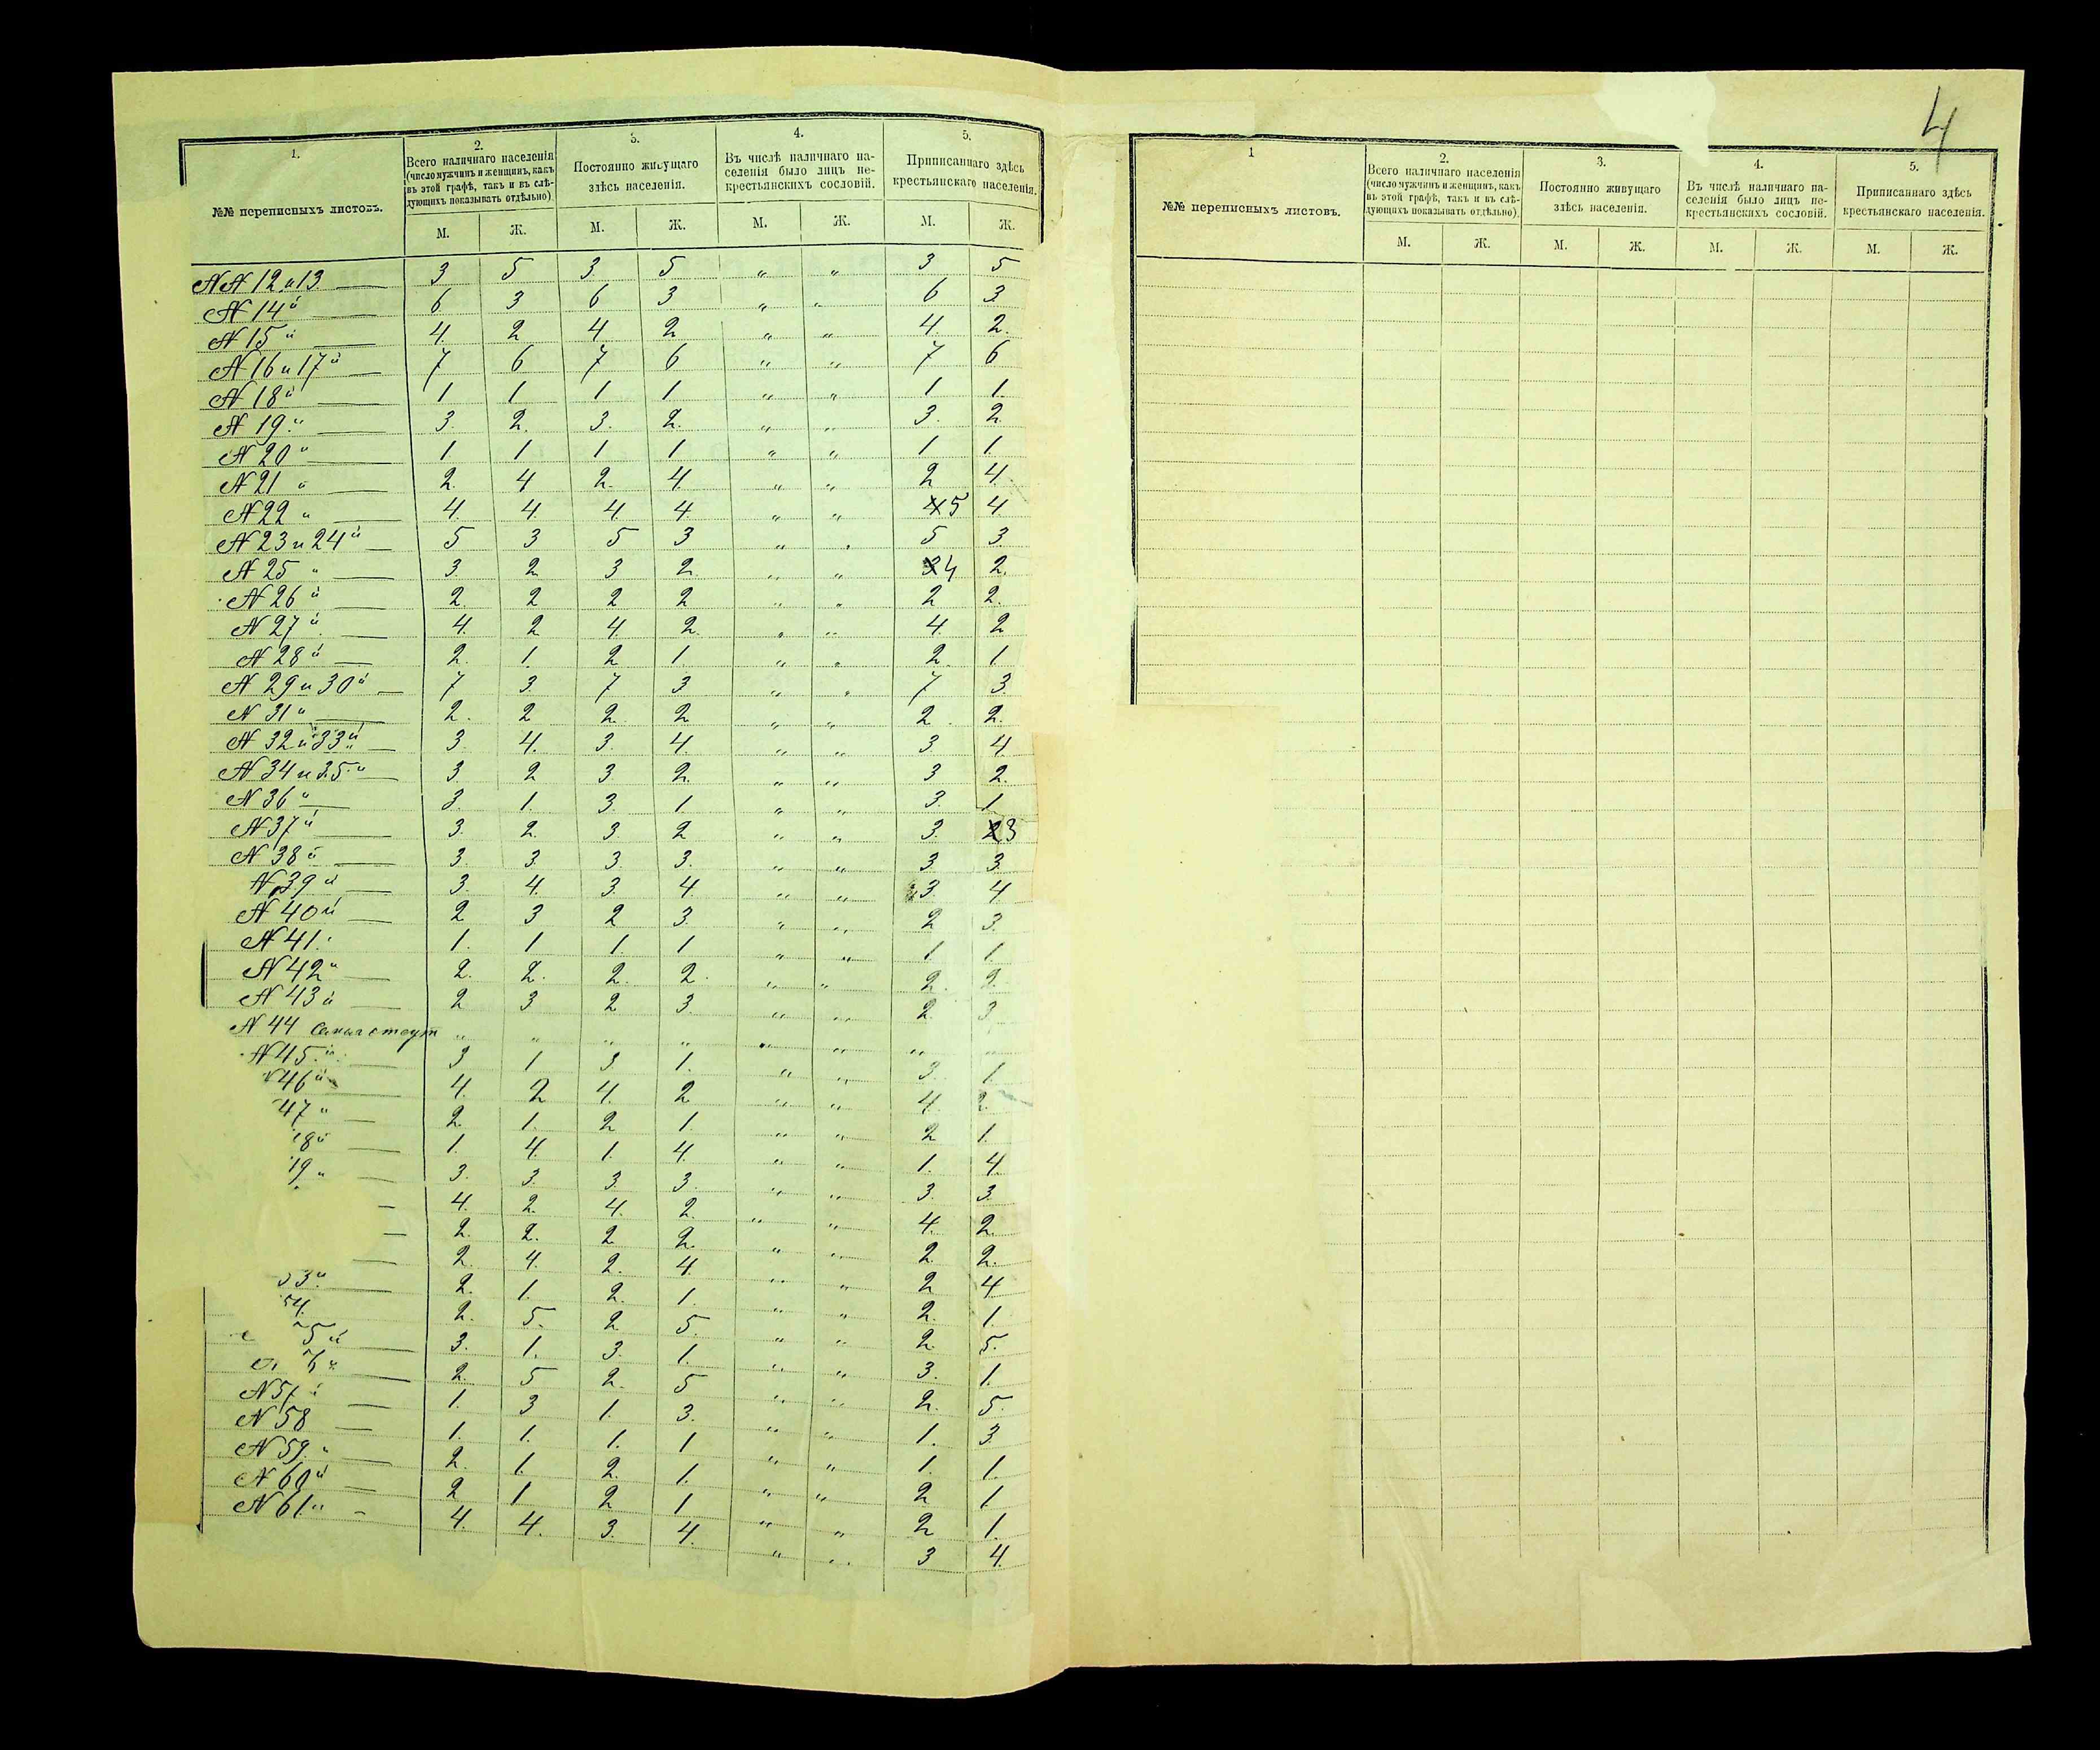 1. 2. 3. 4. 5.
№№ переписныхъ листовъ. Всего наличнаго населенія (число мужчинъ и женщинъ, какъ въ этой графѣ, такъ и въ слѣдующихъ показывать отдѣльно). Постоянно живущаго здѣсь населенія. Въ числѣ наличнаго населенія было лицъ некрестьянскихъ сословій. Приписаннаго здѣсь крестьянскаго населенія.
М. Ж. М. Ж. М. Ж. М. Ж.
№№ 12 и 13 3 5 3 5 „ „ 3 5
№ 14й 6 3 6 3 „ „ 6 3
№ 15й 4. 2 4 2 „ „ 4. 2.
№ 16 и 17й 7 6 7 6 „ „ 7 6
№ 18й 1 1 1 1 „ „ 1 1.
№ 19й 3. 2. 3. 2. „ „ 3. 2
№ 20й 1 1 1 1 „ „ 1 1.
№ 21й 2. 4 2. 4. „ „ 2 4.
№ 22й 4. 4. 4. 4. „ „ 4 5 4.
№ 23 и 24й 5 3 5 3 „ „ 5 3.
№ 25й 3. 2 3 2. „ „ 3 4 2.
№ 26й 2. 2 2 2 „ „ 2 2.
№ 27й 4. 2 4. 2. „ „ 4. 2
№ 28й 2. 1. 2 1. „ „ 2. 1
№ 29 и 30й 7 3. 7 3 „ „ 7 3.
№ 31й 2. 2 2. 2 „ „ 2. 2.
№ 32 и 33й 3. 4. 3. 4. „ „ 3 4
№ 34 и 35й 3 2 3 2. „ „ 3 2.
№ 36й 3. 1. 3. 1. „ „ 3. 1
№ 37й 3. 2. 3. 2 „ „ 3. 2 3
№ 38й 3. 3. 3. 3. „ „ 3 3.
№ 39й 3. 4. 3. 4. „ „ 3. 4
№ 40й 2 3 2 3. „ „ 2 3.
№ 41. 1. 1 1 1 „ „ 1 1.
№ 42й 2. 2. 2. 2. „ „ 2. 2.
№ 43й 2 3 2 3. „ „ 2. 3.
№ 44 „ „ „ „ „ „ „ „
№ 45й 3 1 3 1. „ „ 3. 1.
46й 4. 2 4. 2 „ „ 4. 2.
47й 2. 1. 2 1. „ „ 2 1.
8й 1. 4. 1. 4. „ „ 1. 4.
9й 3. 3. 3. 3. „ „ 3. 3.
4. 2. 4. 2. „ „ 4. 2.
2. 2. 2. 2. „ „ 2. 2.
2. 4. 2. 4. „ „ 2 4
3й 2. 1. 2. 1. „ „ 2. 1.
54. 2. 5. 2. 5. „ „ 2. 5.
5й 3. 1. 3. 1. „ „ 3. 1.
6й 2. 5 2. 5 „ „ 2. 5.
№ 57й 1. 3 1. 3. „ „ 1. 3.
№ 58 1. 1. 1. 1 „ „ 1. 1.
№ 59й 2. 1. 2. 1. „ „ 2 1
№ 60й 2 1 2 1 „ „ 2 1.
№ 61й 4. 4. 3. 4. „ „ 3 4.
4
1 2. 3. 4. 5.
№№ переписныхъ листовъ. Всего наличнаго населенія (число мужчинъ и женщинъ, какъ въ этой графѣ, такъ и въ слѣдующихъ показывать отдѣльно). Постоянно живущаго здѣсь населенія. Въ числѣ наличнаго населенія было лицъ некрестьянскихъ сословій. Приписаннаго здѣсь крестьянскаго населенія.
М. Ж. М. Ж. М. Ж. М. Ж.